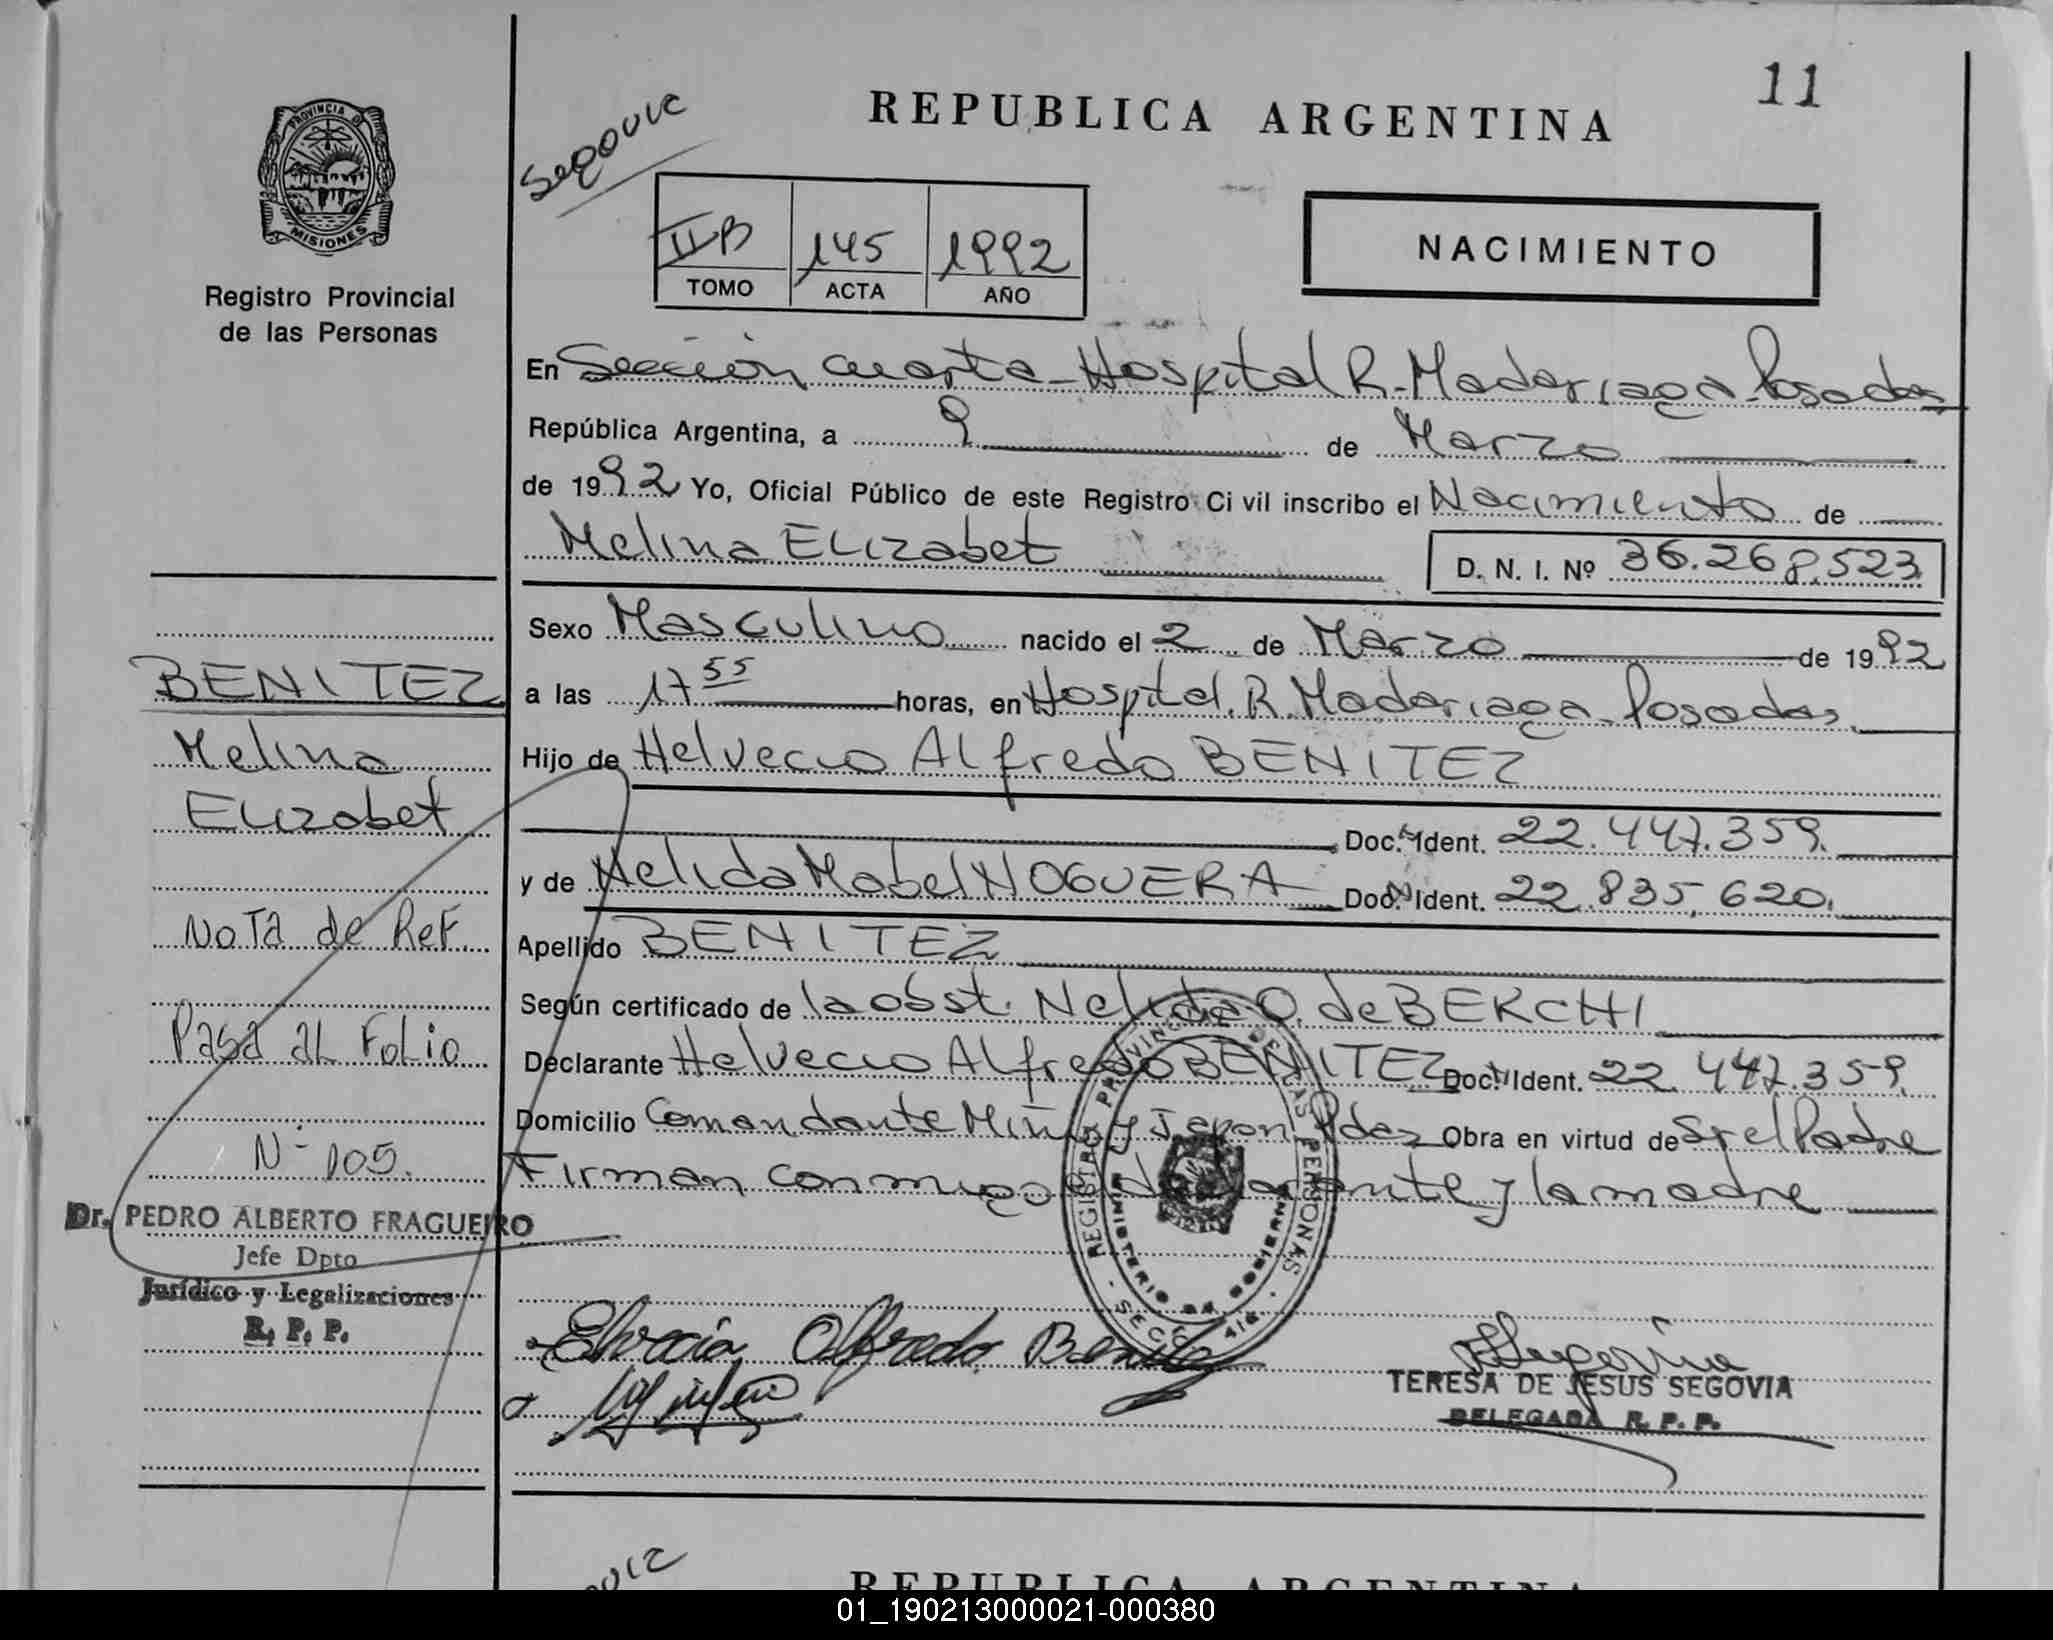 11
PROVINCIA DE
MISIONES
Registro Provincial
de las Personas
Segovia
REPUBLICA ARGENTINA
NACIMIENTO
IIB 145 1992
TOMO ACTA AÑO
En Sección cuarta - Hospital R. Madariaga - Posadas
República Argentina, a 9 de Marzo
de 1992 Yo, Oficial Público de este Registro Civil inscribo el Nacimiento de
Melina Elizabet D. N. I. Nº 36.268.523
Sexo Masculino nacido el 2 de Marzo de 1992
a las 17 55 horas, en Hospital. R. Madariaga - Posadas.
Hijo de Helvecio Alfredo BENITEZ
Doc. Ident. 22.447.359.
y de Nelida Mabel NOGUERA Doc. Ident. 22.835.620.
Apellido BENITEZ
Según certificado de la obst. Nelida O. de BERCHI
Declarante Helvecio Alfredo BENITEZ Doc. Ident. 22.447.359.
Domicilio Comandante Miño y Japon Pdas Obra en virtud de Sr el Padre
Firman conmigo el declarante y la madre
BENITEZ
Melina
Elizabet
Nota de Ref.
Pasa al Folio
Nº 105.
Dr. PEDRO ALBERTO FRAGUEIRO
Jefe Dpto
Jurídico y Legalizaciones
R. P. P.
REGISTRO PROVINCIAL DE LAS PERSONAS
MINISTERIO DE GOBIERNO
SECC. 4ta
Elvecio Alfredo Benitez
TERESA DE JESUS SEGOVIA
DELEGADA R. P. P.
REPUBLICA ARGENTINA
01_190213000021-000380